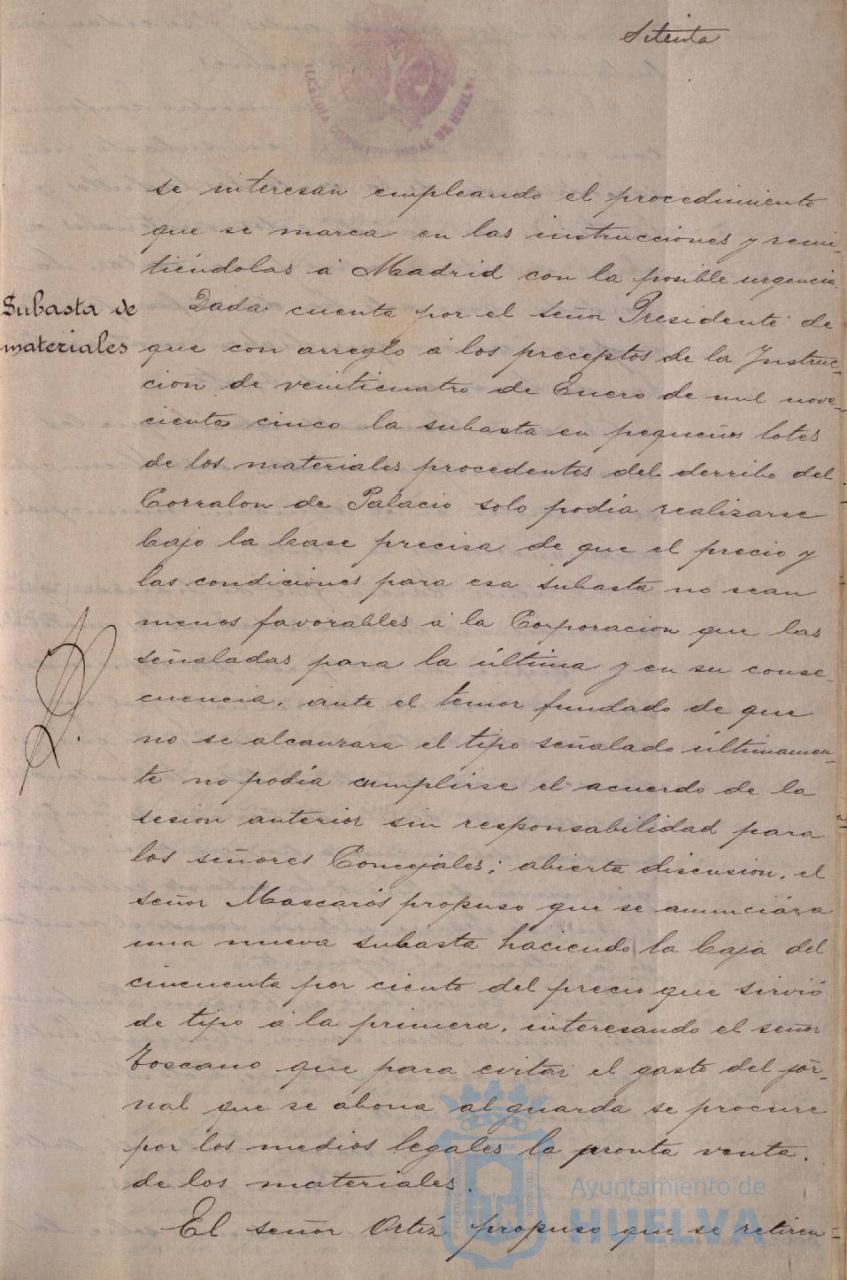 Setenta
ALCALDIA CONSTITUCIONAL DE HUELVA
se interesan empleando el procedimiento
que se marca en las instrucciones y remi-
tiéndolas á Madrid con la posible urgencia.
Subasta de
materiales
Dada cuenta por el señor Presidente de
que con arreglo á los preceptos de la Instruc-
cion de veinticuatro de Enero de mil nove-
cientos cinco la subasta en pequeños lotes
de los materiales procedentes del derribo del
Corralon de Palacio solo podia realizarse
bajo la base precisa de que el precio y
las condiciones para esa subasta no sean
menos favorables á la Corporacion que las
señaladas para la última y en su conse-
cuencia, ante el temor fundado de que
no se alcanzara el tipo señalado últimamen-
te no podia cumplirse el acuerdo de la
sesion anterior sin responsabilidad para
los señores Concejales; abierta discusion, el
señor Mascarós propuso que se anunciára
una nueva subasta haciendo la baja del
cincuenta por ciento del precio que sirvió
de tipo á la primera, interesando el señor
Toscano que para evitar el gasto del jor-
nal que se abona al guarda se procure
por los medios legales la pronta venta
de los materiales.
El señor Ortiz propuso que se retiren
Ayuntamiento de
HUELVA